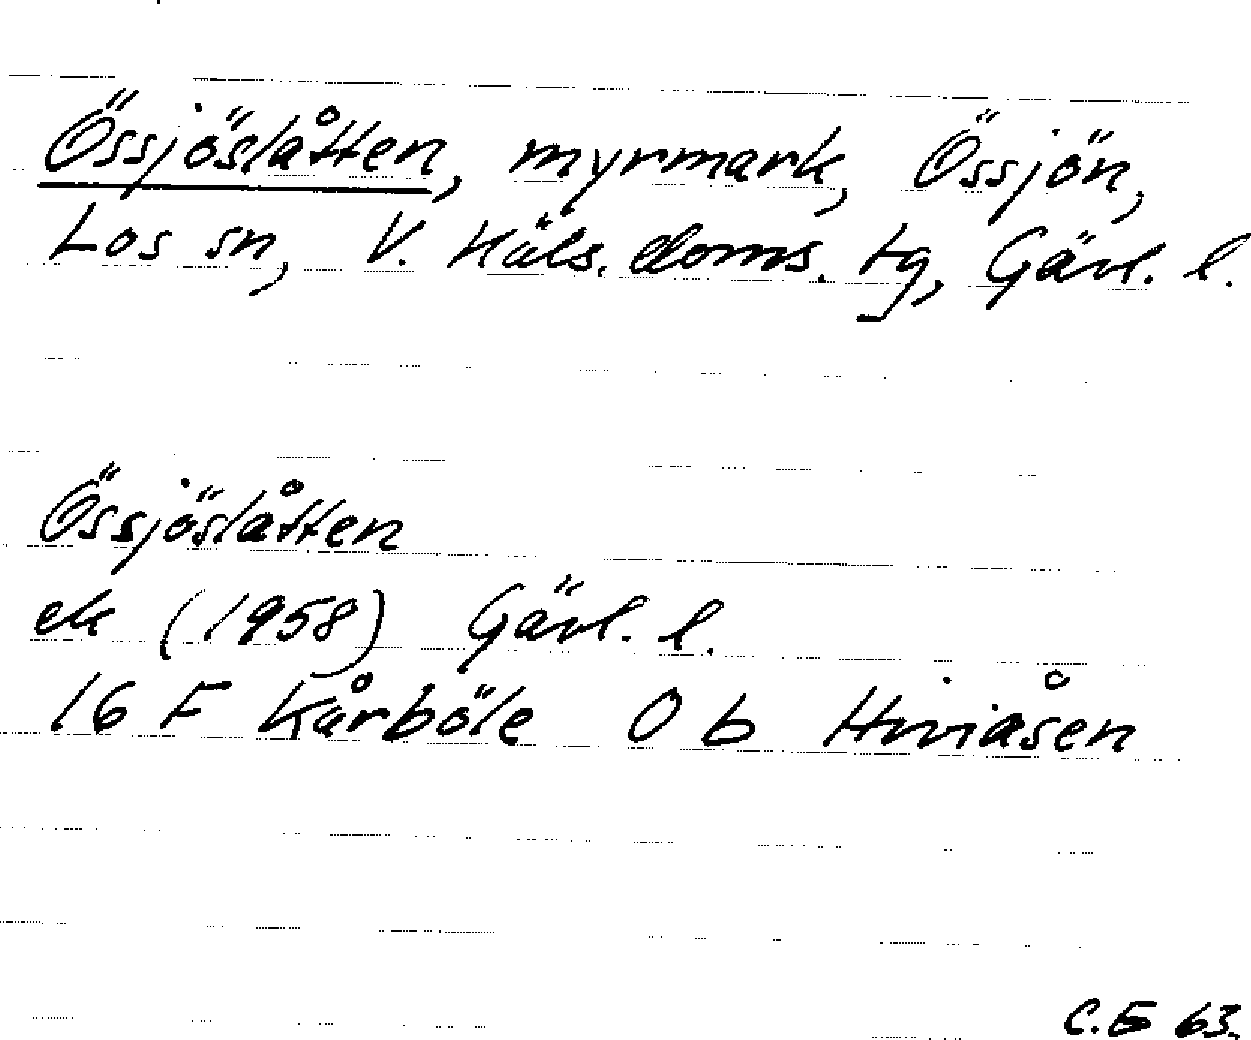 Össjöslåtten, myrmark, Össjön,
Los sn, V. Häls. doms. tg, Gävl. l.
Össjöslåtten
ek (1958) Gävl. l.
16 F Kårböle 0 b Hviåsen
C.E 63.